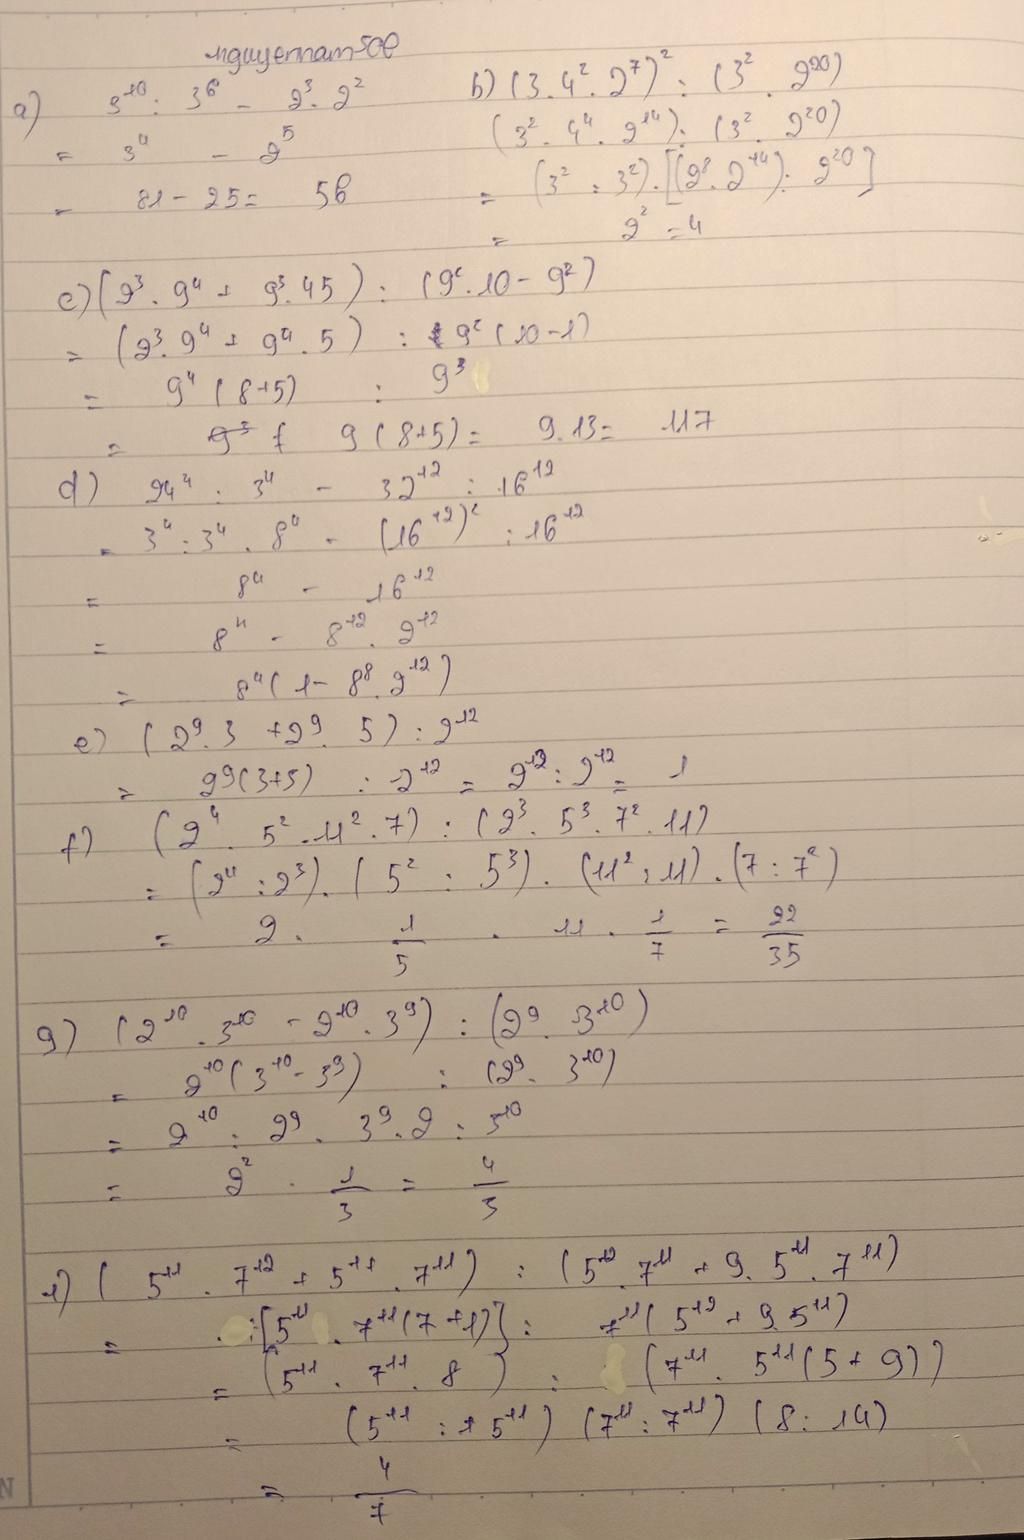 nguyennam508
a) 3¹⁰ : 3⁶ - 2³ . 2²
= 3⁴ - 2⁵
= 81 - 25 = 56
b) (3 . 4² . 2⁷)² : (3² . 2²⁰)
(3² . 4⁴ . 2¹⁴) : (3² . 2²⁰)
= (3² : 3²) . [(2⁸ . 2¹⁴) : 2²⁰]
= 2² = 4
c) (2³ . 9⁴ + 9³ . 45) : (9² . 10 - 9²)
= (2³ . 9⁴ + 9⁴ . 5) : 9² (10 - 1)
= 9⁴ (8+5) : 9³
= 9 (8+5) = 9 . 13 = 117
d) 24⁴ : 3⁴ - 32¹² : 16¹²
= 3⁴ : 3⁴ . 8⁴ - (16¹²)² : 16¹²
= 8⁴ - 16¹²
= 8⁴ - 8¹² . 2¹²
= 8⁴ (1 - 8⁸ . 2¹²)
e) (2⁹ . 3 + 2⁹ . 5) : 2¹²
= 2⁹ (3+5) : 2¹² = 2¹² : 2¹² = 1
f) (2⁴ . 5² . 11² . 7) : (2³ . 5³ . 7² . 11)
= (2⁴ : 2³) . (5² : 5³) . (11² : 11) . (7 : 7²)
= 2 . 1/5 . 11 . 1/7 = 22/35
g) (2¹⁰ . 3¹⁰ - 2¹⁰ . 3⁹) : (2⁹ . 3¹⁰)
= 2¹⁰ (3¹⁰ - 3⁹) : (2⁹ . 3¹⁰)
= 2¹⁰ : 2⁹ . 3⁹ . 2 : 3¹⁰
= 2² . 1/3 = 4/3
1) (5¹¹ . 7¹² + 5¹¹ . 7¹¹) : (5¹² . 7¹¹ + 9 . 5¹¹ . 7¹¹)
= [5¹¹ . 7¹¹ (7+1)] : 7¹¹ (5¹² + 9 . 5¹¹)
= (5¹¹ . 7¹¹ . 8) : (7¹¹ . 5¹¹ (5 + 9))
= (5¹¹ : 5¹¹) (7¹¹ : 7¹¹) (8 : 14)
= 4/7